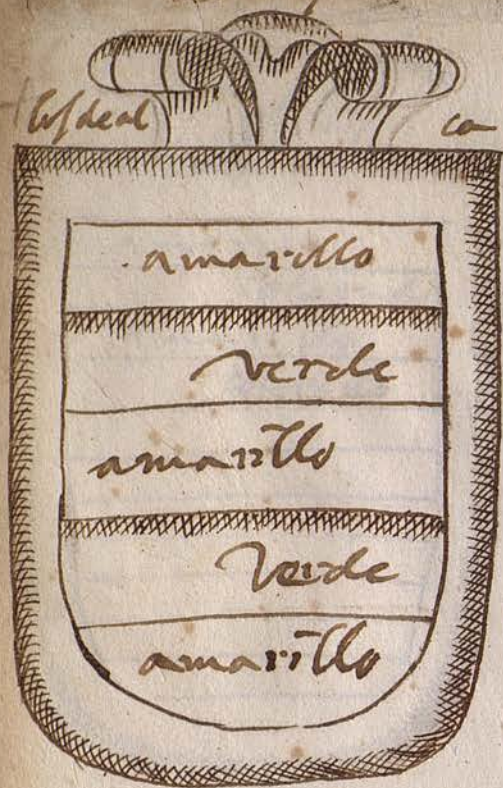 los de al ca
amarillo
verde
amarillo
verde
amarillo